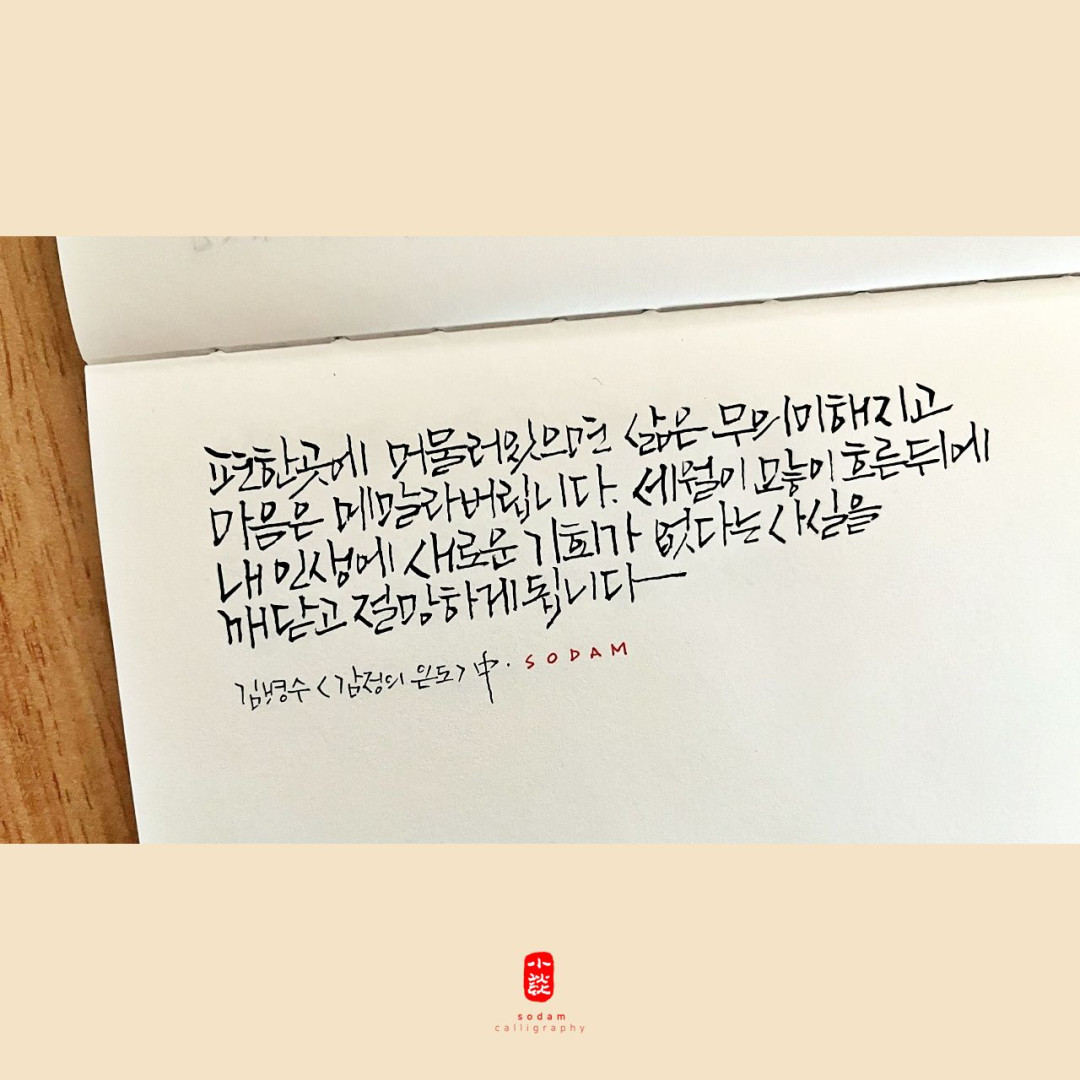 편한곳에 머물러있으면 삶은 무의미해지고
마음은 메말라버립니다. 세월이 많이 흐른뒤에
내 인생에 새로운 기회가 없다는 사실을
깨닫고 절망하게됩니다
김병수 <감정의 온도> 中. SODAM
小談
sodam
calligraphy